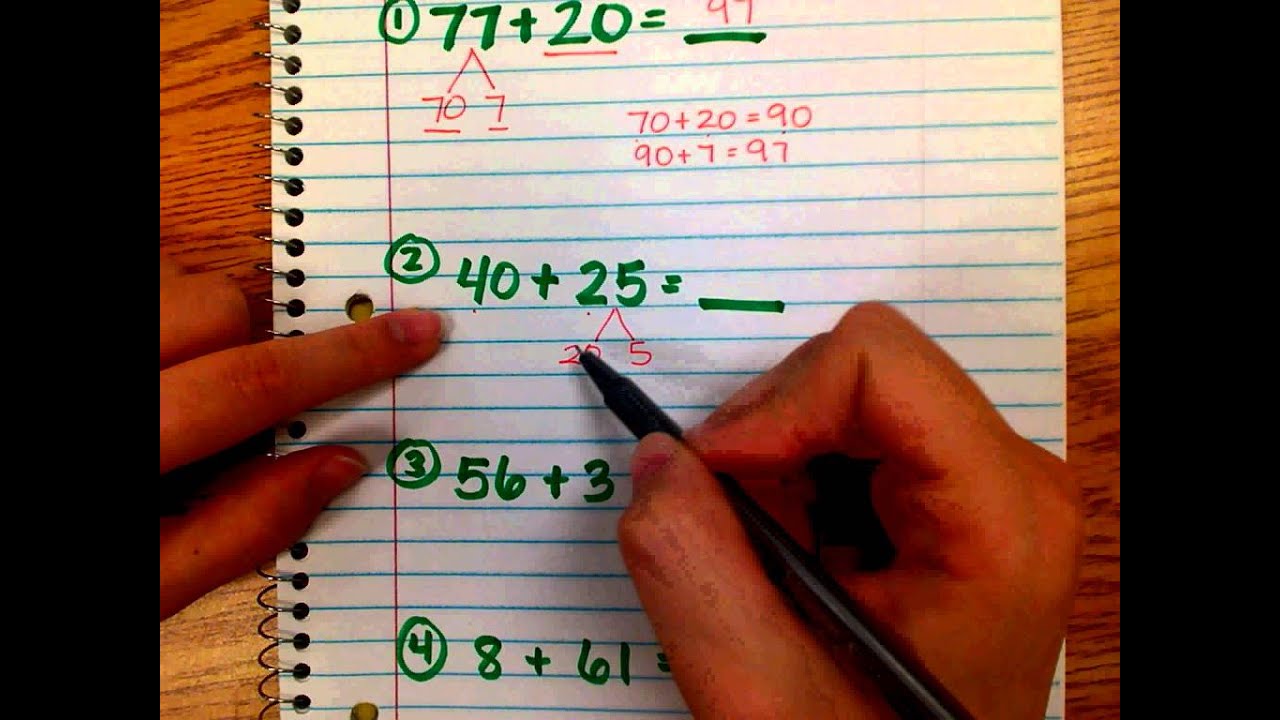 ① 77 + 20 = 97
70 7
70 + 20 = 90
90 + 7 = 97
② 40 + 25 =
20 5
③ 56 + 3
④ 8 + 61 =